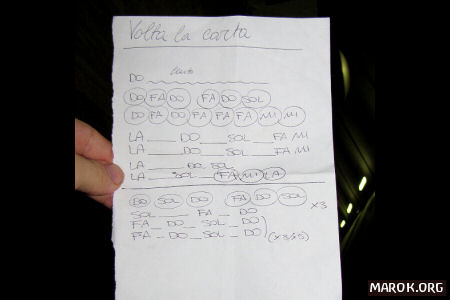 Volta la carta
DO canto
DO FA DO FA DO SOL
DO FA DO FA FA FA MI MI
LA ___ DO ___ SOL __ FA MI
LA ___ DO ___ SOL __ FA MI
LA ___ DO SOL
LA ___ SOL __ FA MI LA
DO SOL DO FA DO SOL x3
SOL ___ FA _ DO
FA _ DO _ SOL _ DO
FA _ DO _ SOL _ DO
MAROK.ORG